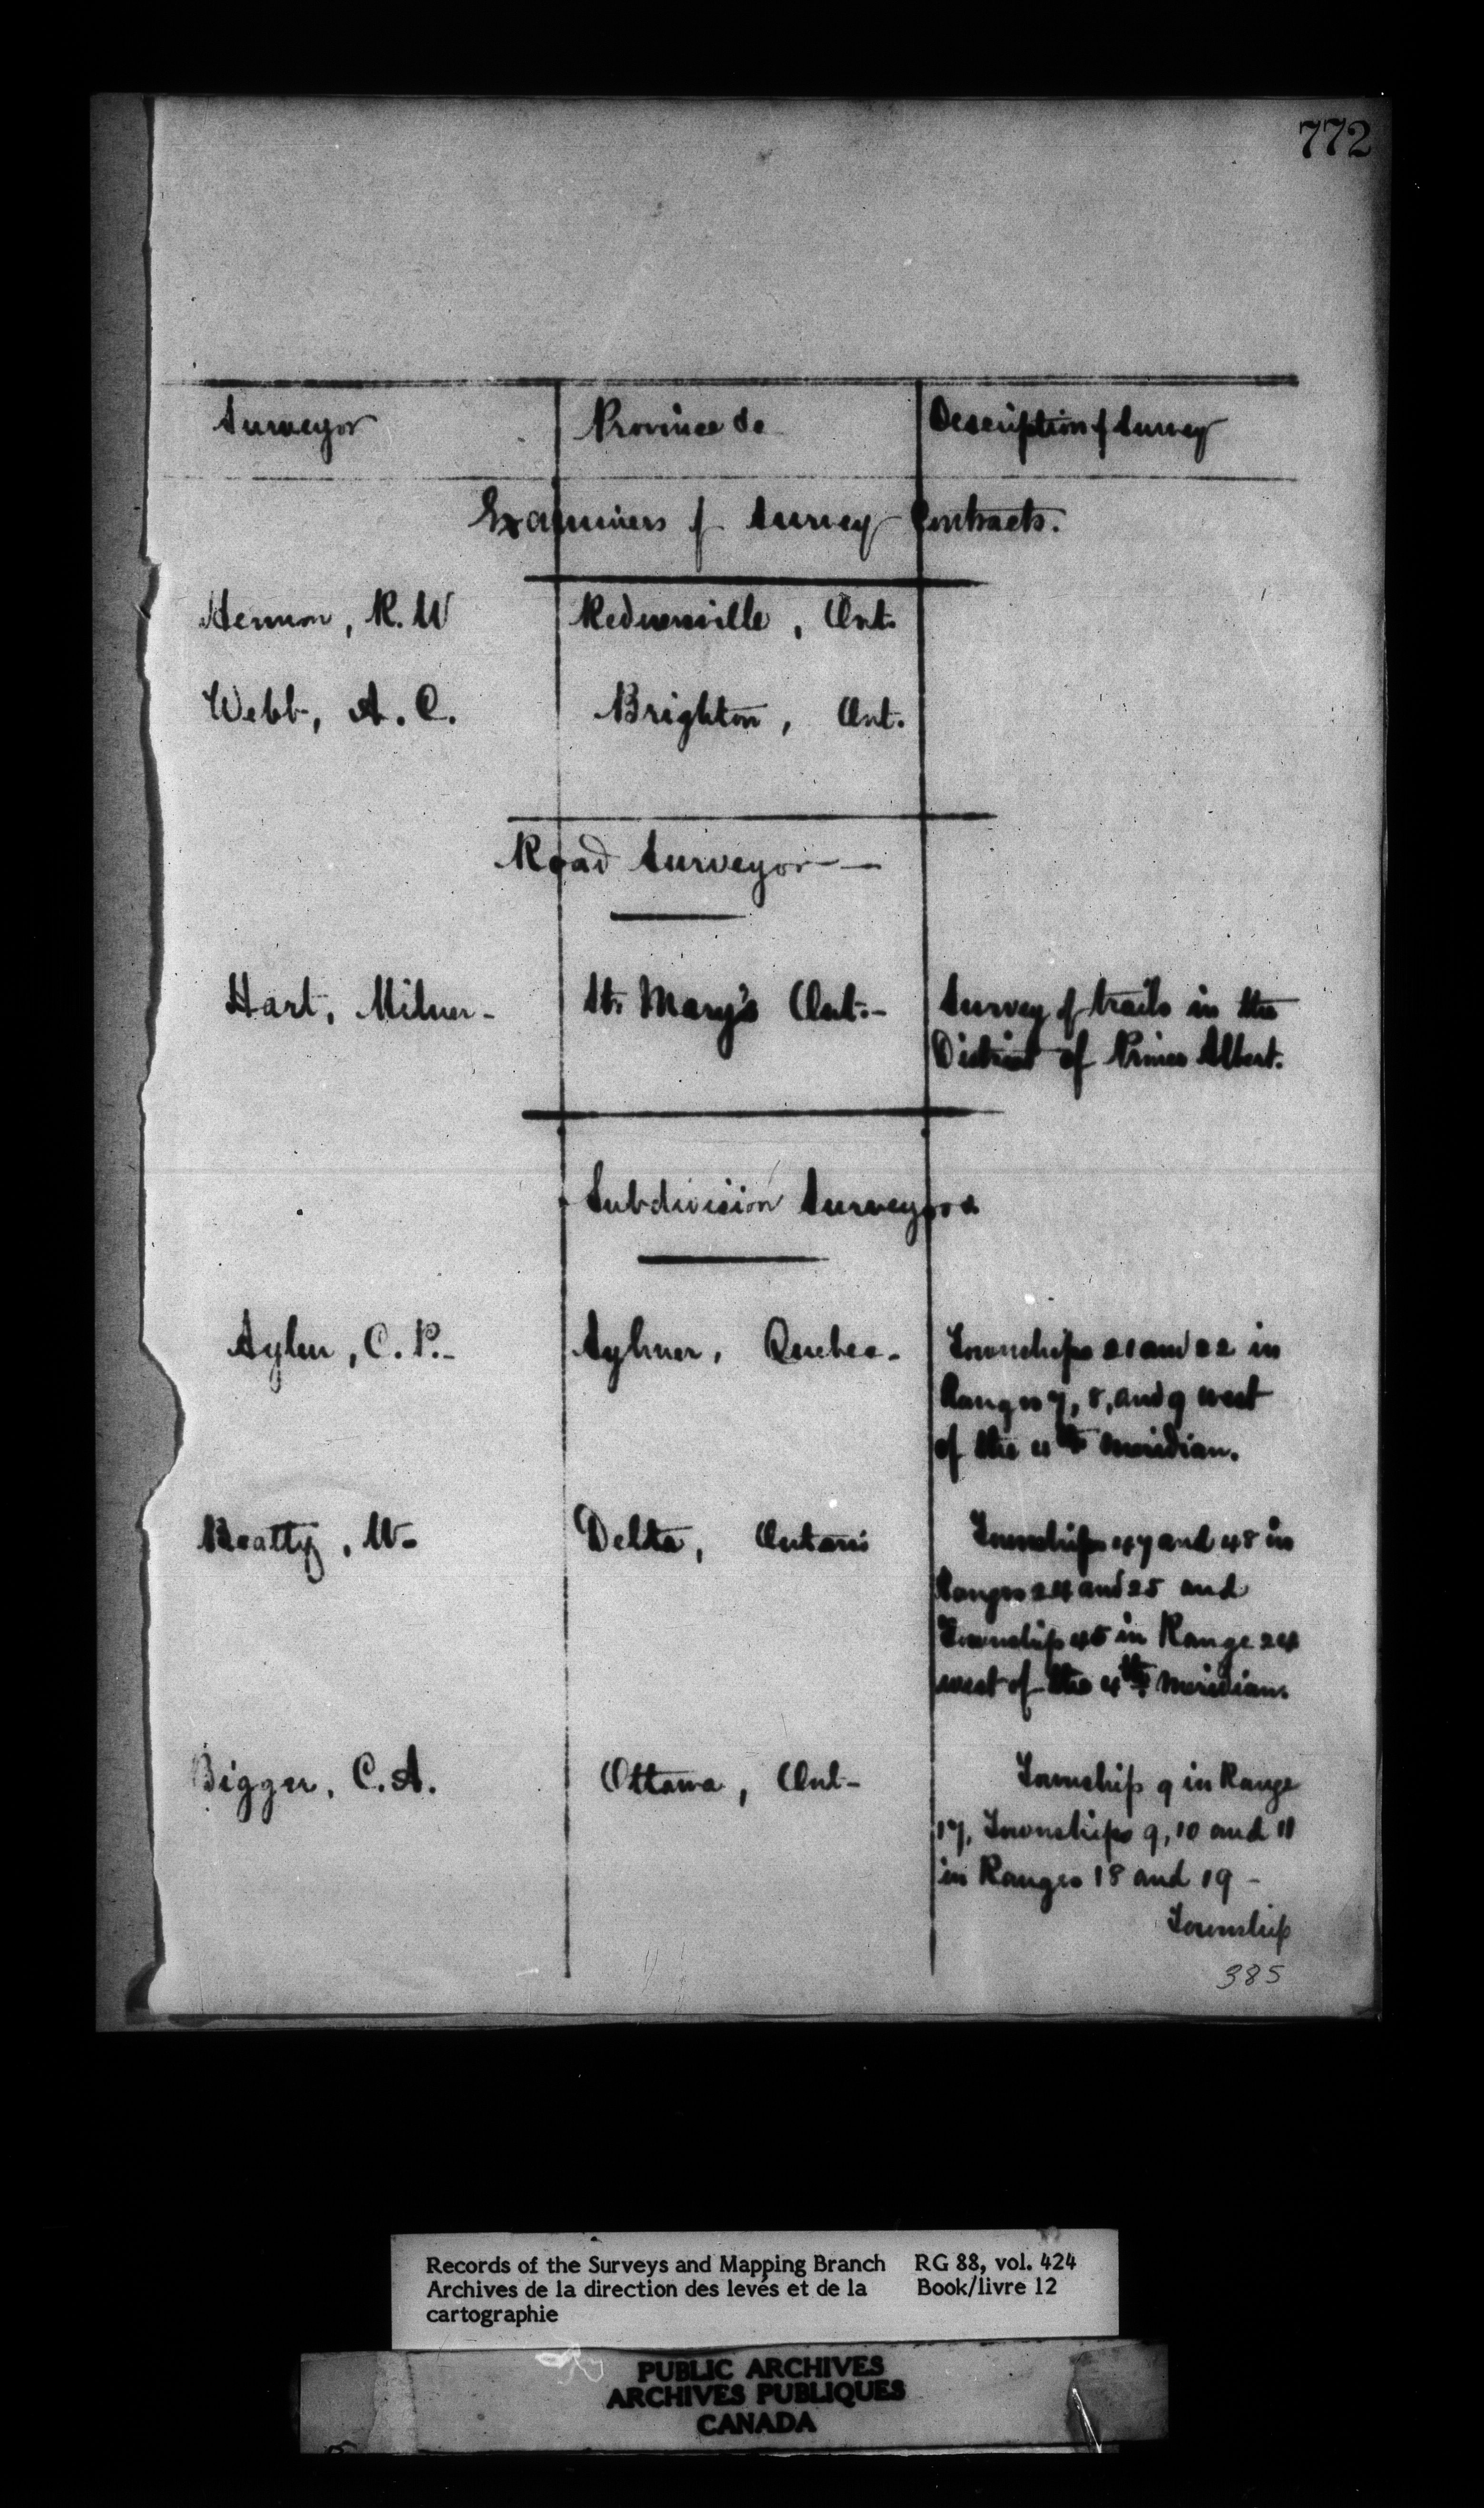 772
Surveyor Province &c Description of Survey
Examiners of Survey Contracts.
Hermon, R. W Rednerville, Ont.
Webb, A. C. Brighton, Ont.
Road Surveyor
Hart, Milner - St. Mary's Ont. - Survey of trails in the
District of Prince Albert.
Subdivision Surveyors
Aylen, C. P. - Aylmer, Quebec - Townships 21 and 22 in
Ranges 7, 8, and 9 west
of the 4th Meridian.
Beatty, W. Delta, Ontario Townships 47 and 48 in
Ranges 24 and 25 and
Township 45 in Range 24
west of the 4th Meridian.
Bigger, C. A. Ottawa, Ont - Township 9 in Range
17, Townships 9, 10 and 11
in Ranges 18 and 19 -
Township
385
Records of the Surveys and Mapping Branch RG 88, vol. 424
Archives de la direction des levés et de la Book/livre 12
cartographie
PUBLIC ARCHIVES
ARCHIVES PUBLIQUES
CANADA